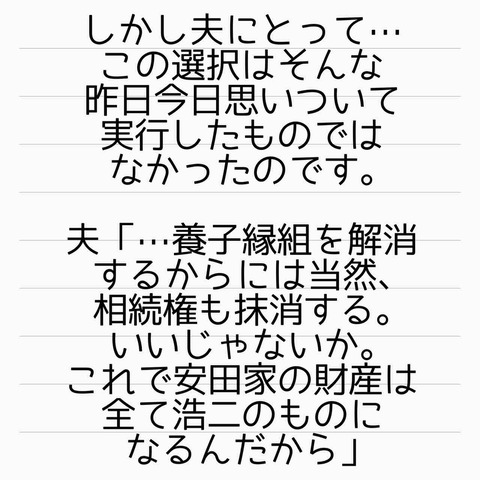 しかし夫にとって…
この選択はそんな
昨日今日思いついて
実行したものでは
なかったのです。
夫「…養子縁組を解消
するからには当然、
相続権も抹消する。
いいじゃないか。
これで安田家の財産は
全て浩二のものに
なるんだから」